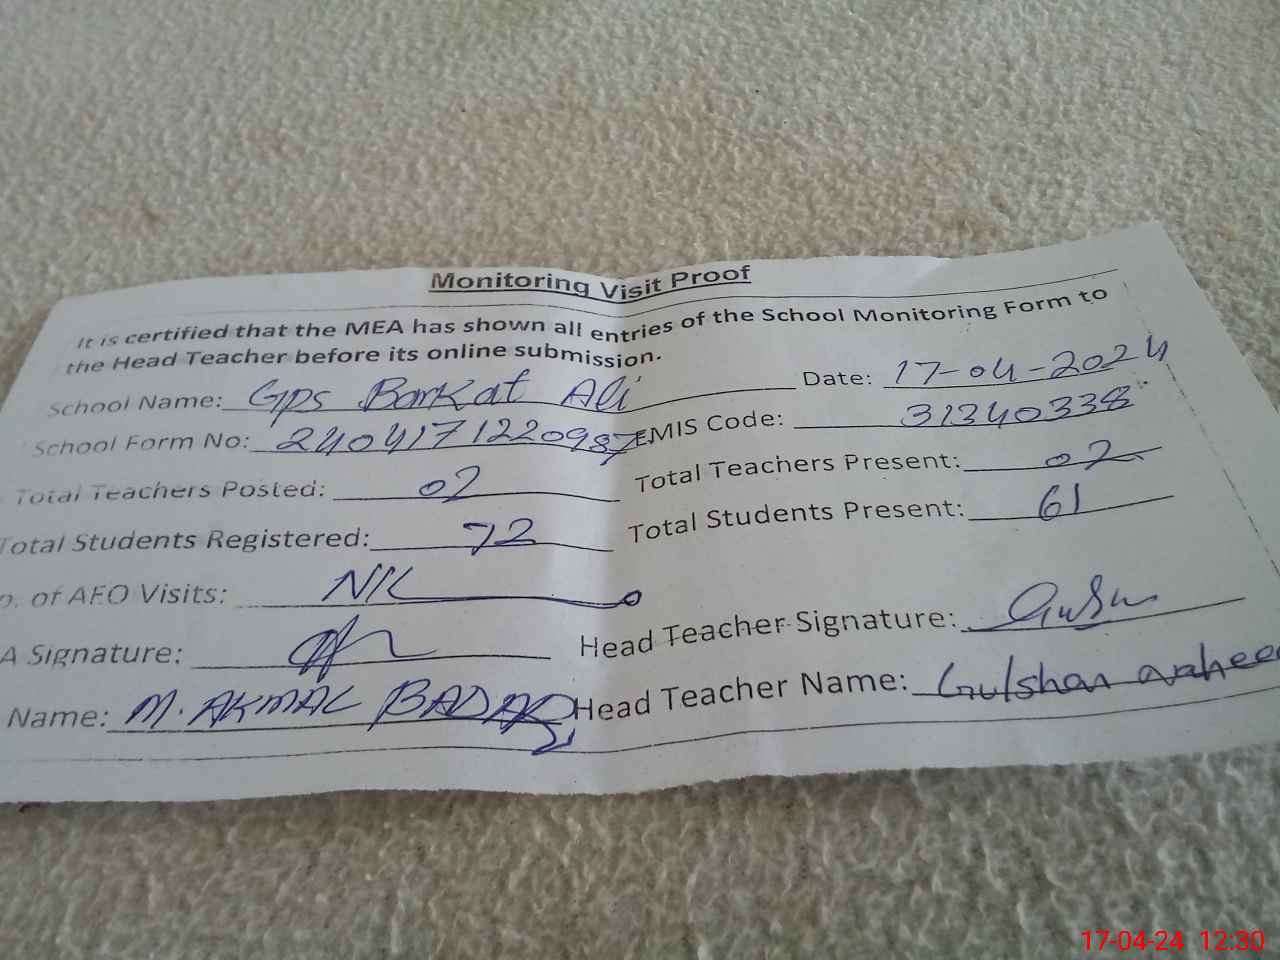 Monitoring Visit Proof
It is certified that the MEA has shown all entries of the School Monitoring Form to
the Head Teacher before its online submission.
School Name: Gps Barkat Ali Date: 17-04-2024
School Form No: 240417122098 EMIS Code: 31340338
Total Teachers Posted: 02 Total Teachers Present: 02
Total Students Registered: 72 Total Students Present: 61
o. of AEO Visits: NIL
A Signature: Head Teacher Signature:
Name: M. AKMAL BADAR Head Teacher Name: Gulshan
17-04-24 12:30